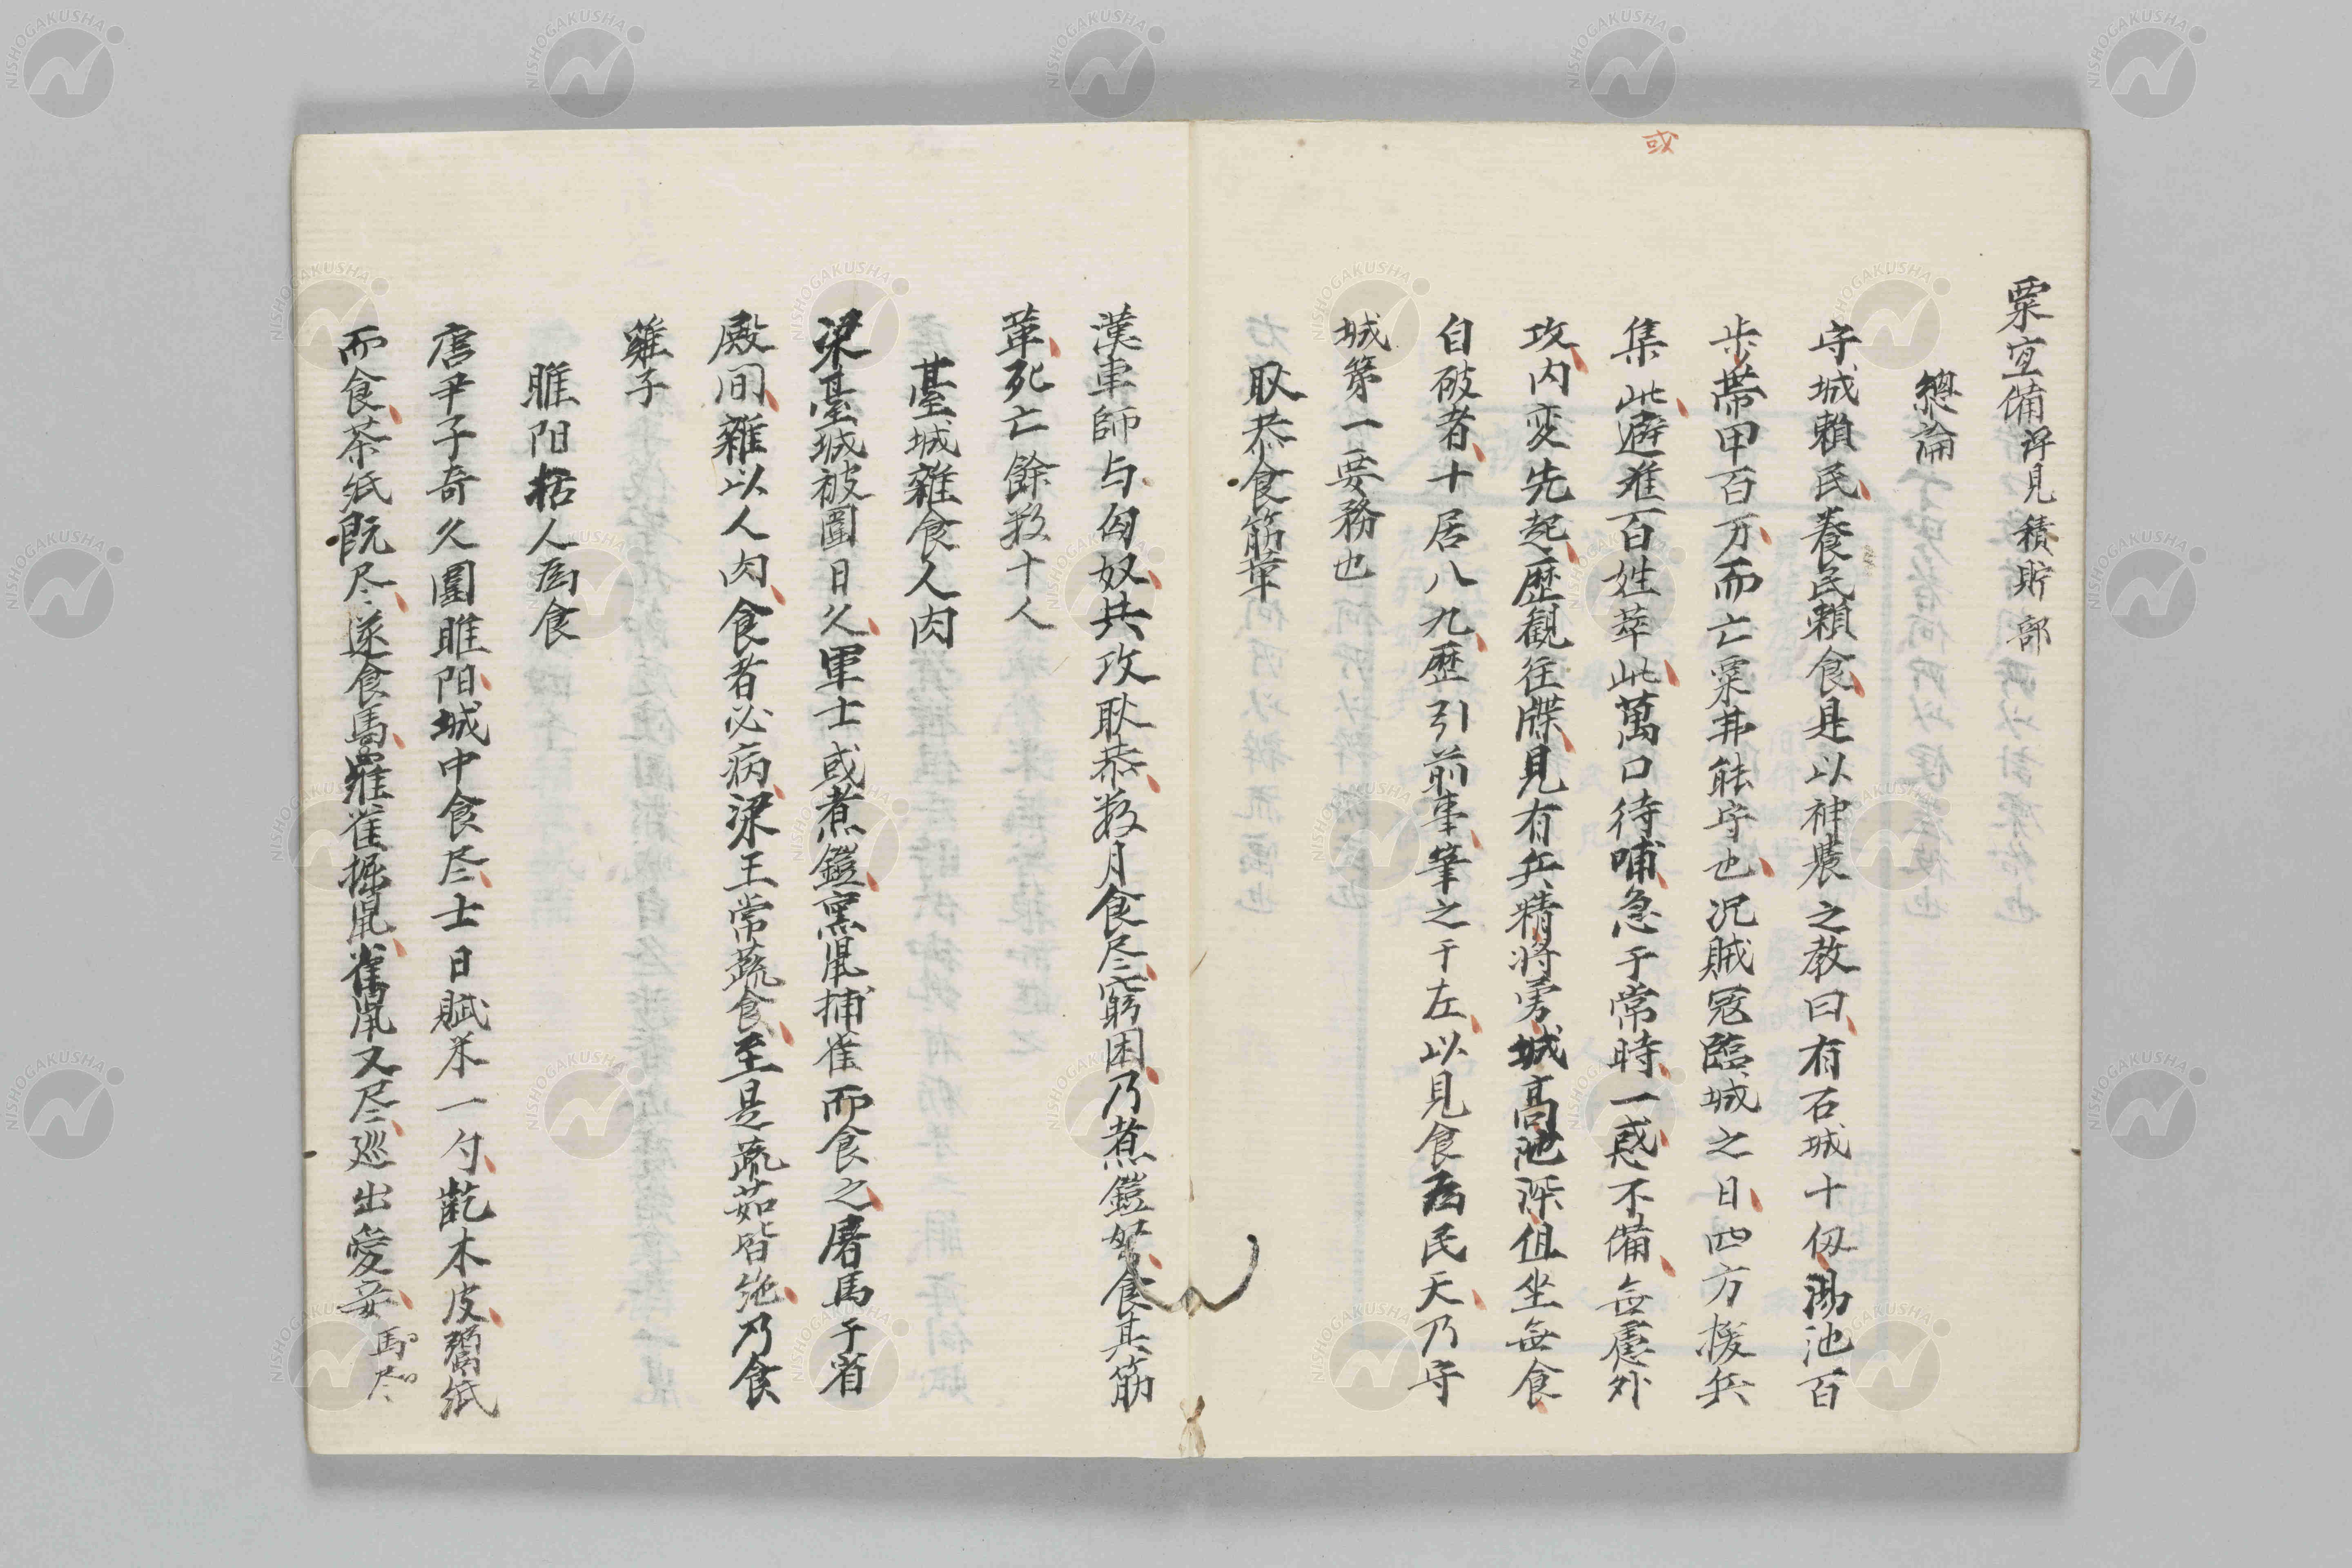 粟宜備詳見積貯部
總論
守城賴民養民賴食是以神農之教曰有石城十仭湯池百
步帶甲百万而亡粟弗能守也况賊冦臨城之日四方援兵
集此避难百姓萃此萬口待哺急于常時一惑不備無慮外
攻内変先起歴観往牒見有兵精将勇城高池深但坐無食
自破者十居八九歴引前事筆之于左以見食為民天乃守
城第一要務也
耿恭食筋革
漢車師与匈奴共攻耿恭数月食尽窮困乃煮鎧弩食其筋
革死亡餘数十人
臺城雜食人肉
梁臺城被圍日久軍士或煮鎧熏鼠捕雀而食之屠馬于省
殿间雜以人肉食者必病梁王常蔬食至是蔬茹皆绝乃食
雞子
睢阳括人為食
唐尹子奇久圍睢阳城中食尽士日賦米一勺齕木皮鬻紙
而食茶紙既尽遂食馬羅雀掘鼠雀鼠又尽巡出愛妾
馬尽
或
NISHOGAKUSHA